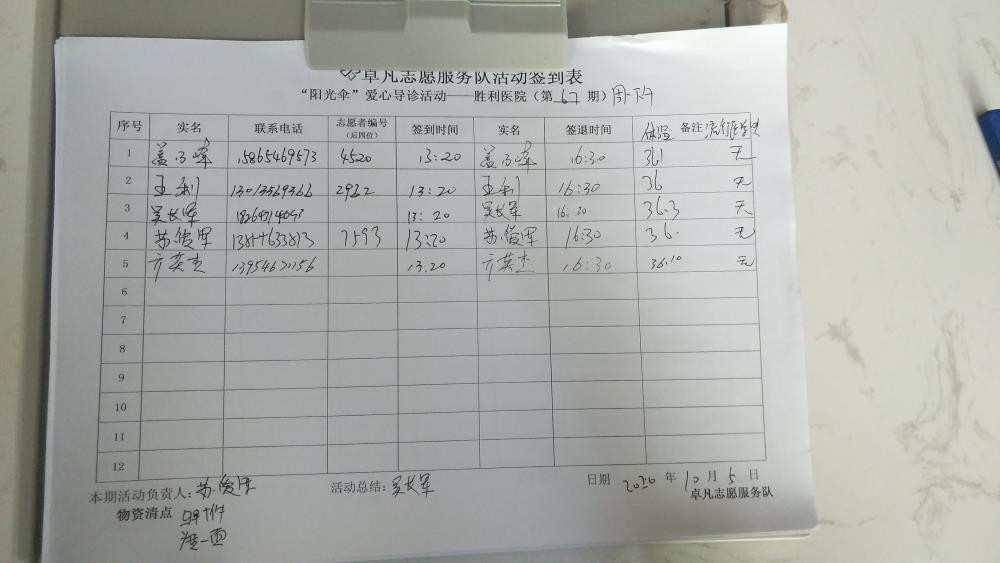 卓凡志愿服务队活动签到表
“阳光伞”爱心导诊活动——胜利医院（第 67 期）周一下午
序号 实名 联系电话 志愿者编号（后四位） 签到时间 实名 签退时间 体温 备注 流行医学史
1 15865469573 4520 13:20 16:30 36.1 无
2 王利 13013569366 2962 13:20 王利 16:30 36 无
3 吴长军 13:20 吴长军 16:30 36.3 无
4 苏俊军 7593 13:20 苏俊军 16:30 36. 无
5 齐英杰 13954671156 13.20 齐英杰 16:30 36.10 无
6
7
8
9
10
11
12
本期活动负责人：苏俊军 活动总结：吴长军 日期 2020 年 10 月 5 日
物资清点 卓凡志愿服务队